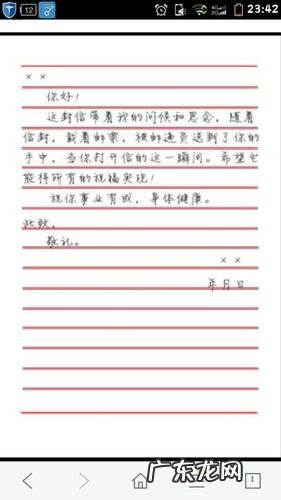 12
4G
2G
23:42
××
你好!
这封信带着我的问候和思念,随着
信封,载着邮票,被邮递员送到了你的
手中,当你打开信的这一瞬间。希望它
能将所有的祝福实现!
祝你事业有成,身体健康。
此致,
敬礼。
××
年月日
广东龙网